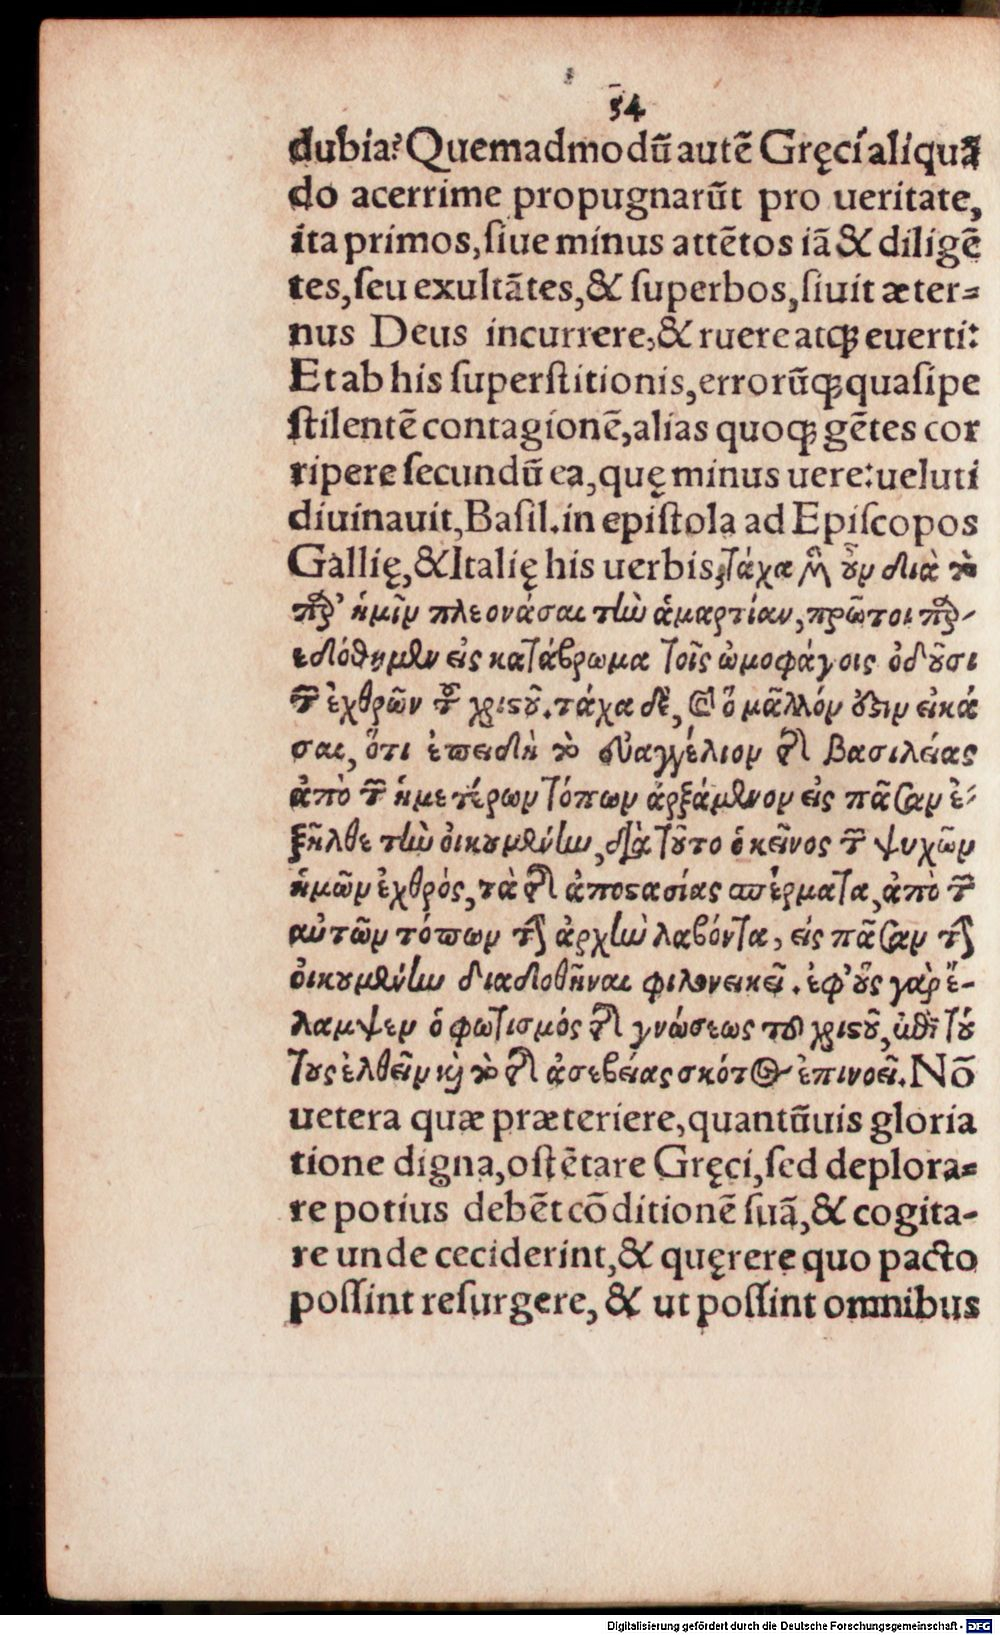 54
dubia? Quemadmodũ autẽ Gręci aliquã
do acerrime propugnarũt pro ueritate,
ita primos, ſiue minus attẽtos iã & diligẽ
tes, ſeu exultãtes, & ſuperbos, ſiuit æter-
nus Deus incurrere, & ruere atq; euerti:
Et ab his ſuperſtitionis, errorũq; quaſi pe
ſtilentẽ contagionẽ, alias quoq; gẽtes cor
ripere ſecundũ ea, quę minus uere: ueluti
diuinauit, Baſil. in epiſtola ad Epiſcopos
Gallię, & Italię his uerbis, τάχα μὲν οὖν διὰ τὸ
παρ' ἡμῖν πλεονάσαι τὴν ἁμαρτίαν, πρῶτοι παρ-
εδόθημεν εἰς κατάβρωμα τοῖς ὠμοφάγοις ὀδοῦσι
τῶν ἐχθρῶν τοῦ χριστοῦ. τάχα δὲ, καὶ ὃ μᾶλλόν ἐστιν εἰκά
σαι, ὅτι ἐπειδὴ τὸ εὐαγγέλιον τῆς βασιλείας
ἀπὸ τῶν ἡμετέρων τόπων ἀρξάμενον εἰς πᾶσαν ἐ-
ξῆλθε τὴν οἰκουμένην, διὰ τοῦτο ὁ κεῖνος τῶν ψυχῶν
ἡμῶν ἐχθρός, τὰ τῆς ἀποστασίας σπέρματα, ἀπὸ τῶν
αὐτῶν τόπων τὴν ἀρχὴν λαβόντα, εἰς πᾶσαν τὴν
οἰκουμένην διαδοθῆναι φιλονεικεῖ. ἐφ' οὓς γὰρ ἔ-
λαμψεν ὁ φωτισμός τῆς γνώσεως τοῦ χριστοῦ, ἐπὶ τού
τους ἐλθεῖν καὶ τὸ τῆς ἀσεβείας σκότος ἐπινοεῖ. Nõ
uetera quæ præteriere, quantũuis gloria
tione digna, oſtẽtare Gręci, ſed deplora-
re potius debẽt cõditionẽ ſuã, & cogita-
re unde ceciderint, & quęrere quo pacto
poſſint reſurgere, & ut poſſint omnibus
Digitalisierung gefördert durch die Deutsche Forschungsgemeinschaft - DFG